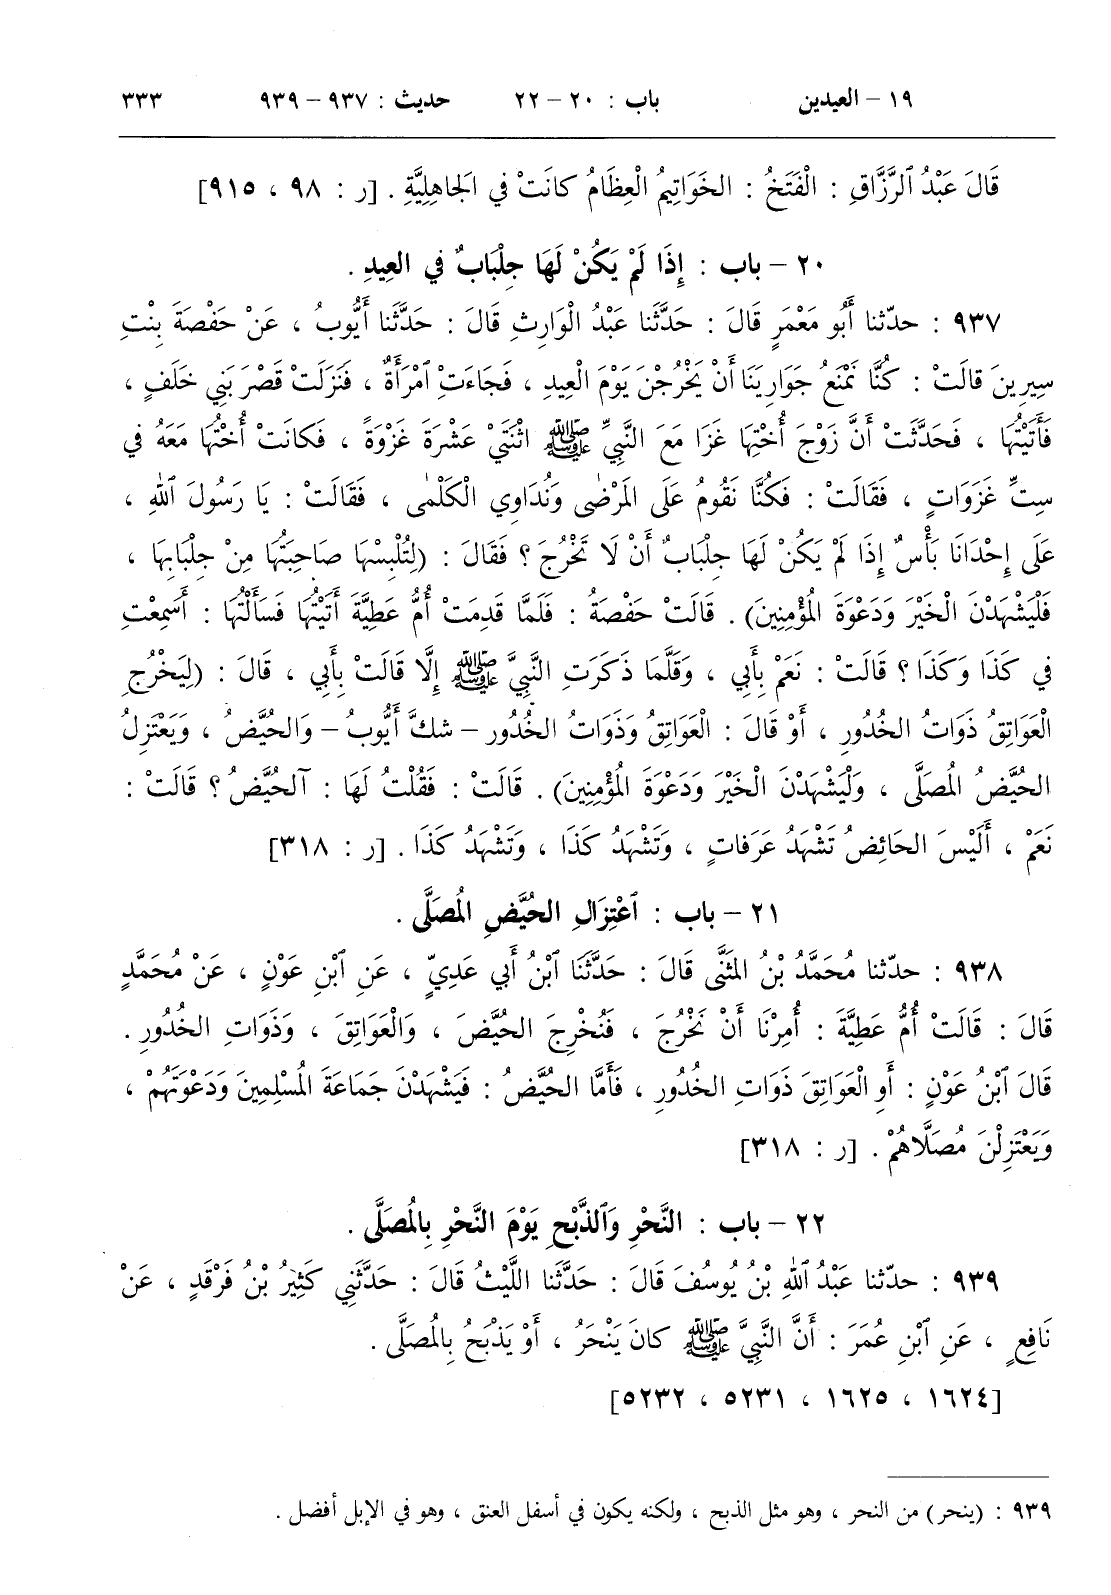 ١٩ – العيدين باب : ٢٠ – ٢٢ حديث : ٩٣٧ – ٩٣٩ ٣٣٣
قَالَ عَبْدُ ٱلرَّزَّاقِ : الْفَتَخُ : الخَوَاتِيمُ الْعِظَامُ كانَتْ في الجَاهِلِيَّةِ . [ر : ٩٨ ، ٩١٥]
٢٠ – باب : إِذَا لَمْ يَكُنْ لَهَا جِلْبَابٌ في العِيدِ .
٩٣٧ : حدّثنا أَبُو مَعْمَرٍ قَالَ : حَدَّثَنا عَبْدُ الْوَارِثِ قَالَ : حَدَّثَنا أَيُّوبُ ، عَنْ حَفْصَةَ بِنْتِ
سِيرِينَ قالَتْ : كُنَّا نَمْنَعُ جَوَارِيَنَا أَنْ يَخْرُجْنَ يَوْمَ الْعِيدِ ، فَجَاءَتِ ٱمْرَأَةٌ ، فَنَزَلَتْ قَصْرَ بَنِي خَلَفٍ ،
فَأَتَيْتُهَا ، فَحَدَّثَتْ أَنَّ زَوْجَ أُخْتِهَا غَزَا مَعَ النَّبِيِّ ﷺ اثْنَتَيْ عَشْرَةَ غَزْوَةً ، فَكانَتْ أُخْتُهَا مَعَهُ في
سِتِّ غَزَوَاتٍ ، فَقَالَتْ : فَكُنَّا نَقُومُ عَلَى المَرْضٰى وَنُدَاوِي الْكَلْمٰى ، فَقَالَتْ : يَا رَسُولَ ٱللهِ ،
عَلَى إِحْدَانَا بَأْسٌ إِذَا لَمْ يَكُنْ لَهَا جِلْبَابٌ أَنْ لَا تَخْرُجَ ؟ فَقَالَ : (لِتُلْبِسْهَا صَاحِبَتُهَا مِنْ جِلْبَابِهَا ،
فَلْيَشْهَدْنَ الْخَيْرَ وَدَعْوَةَ المُؤْمِنِينَ) . قَالَتْ حَفْصَةُ : فَلَمَّا قَدِمَتْ أُمُّ عَطِيَّةَ أَتَيْتُهَا فَسَأَلْتُهَا : أَسَمِعْتِ
في كَذَا وَكَذَا ؟ قالَتْ : نَعَمْ بِأَبِي ، وَقَلَّمَا ذَكَرَتِ النَّبِيَّ ﷺ إِلَّا قَالَتْ بِأَبِي ، قَالَ : (لِيَخْرُجِ
الْعَوَاتِقُ ذَوَاتُ الخُدُورِ ، أَوْ قَالَ : الْعَوَاتِقُ وَذَوَاتُ الخُدُورِ – شكَّ أَيُّوبُ – وَالحُيَّضُ ، وَيَعْتَزِلُ
الحُيَّضُ المُصَلَّى ، وَلْيَشْهَدْنَ الْخَيْرَ وَدَعْوَةَ المُؤْمِنِينَ) . قَالَتْ : فَقُلْتُ لَهَا : آلحُيَّضُ ؟ قَالَتْ :
نَعَمْ ، أَلَيْسَ الحَائِضُ تَشْهَدُ عَرَفَاتٍ ، وَتَشْهَدُ كَذَا ، وَتَشْهَدُ كَذَا . [ر : ٣١٨]
٢١ – باب : ٱعْتِزَالِ الحُيَّضِ المُصَلَّى .
٩٣٨ : حدّثنا مُحَمَّدُ بْنُ المُثَنَّى قَالَ : حَدَّثَنَا ٱبْنُ أَبِي عَدِيٍّ ، عَنِ ٱبْنِ عَوْنٍ ، عَنْ مُحَمَّدٍ
قَالَ : قَالَتْ أُمُّ عَطِيَّةَ : أُمِرْنَا أَنْ نَخْرُجَ ، فَنُخْرِجَ الحُيَّضَ ، وَالْعَوَاتِقَ ، وَذَوَاتِ الخُدُورِ .
قَالَ ٱبْنُ عَوْنٍ : أَوِ الْعَوَاتِقَ ذَوَاتِ الخُدُورِ ، فَأَمَّا الحُيَّضُ : فَيَشْهَدْنَ جَمَاعَةَ المُسْلِمِينَ وَدَعْوَتَهُمْ ،
وَيَعْتَزِلْنَ مُصَلَّاهُمْ . [ر : ٣١٨]
٢٢ – باب : النَّحْرِ وَٱلذَّبْحِ يَوْمَ النَّحْرِ بِالمُصَلَّى .
٩٣٩ : حدّثنا عَبْدُ ٱللهِ بْنُ يُوسُفَ قَالَ : حَدَّثَنا اللَّيْثُ قَالَ : حَدَّثَنِي كَثِيرُ بْنُ فَرْقَدٍ ، عَنْ
نَافِعٍ ، عَنِ ٱبْنِ عُمَرَ : أَنَّ النَّبِيَّ ﷺ كانَ يَنْحَرُ ، أَوْ يَذْبَحُ بِالمُصَلَّى .
[١٦٢٤ ، ١٦٢٥ ، ٥٢٣١ ، ٥٢٣٢]
٩٣٩ : (ينحر) من النحر ، وهو مثل الذبح ، ولكنه يكون في أسفل العنق ، وهو في الإبل أفضل .